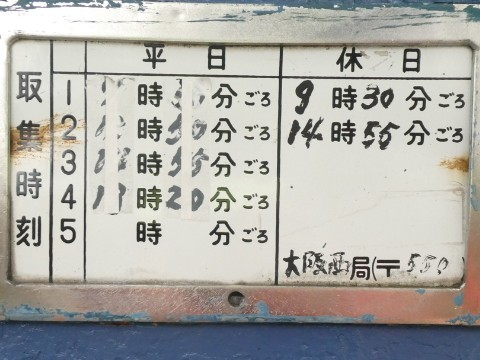 取集時刻
平日 休日
1 時 分ごろ 9時30分ごろ
2 時50分ごろ 14時55分ごろ
3 時55分ごろ
4 時20分ごろ
5 時 分ごろ
大阪西局(〒550)